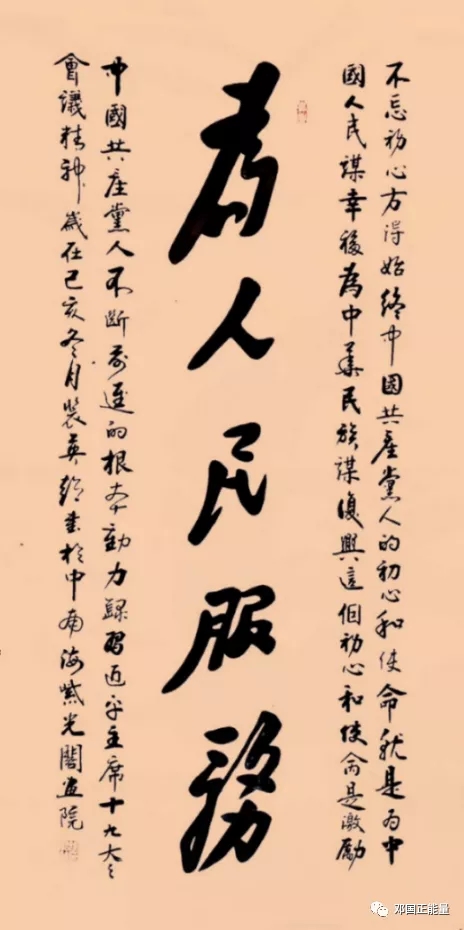 不忘初心方得始終中國共產黨人的初心和使命就是为中
國人民謀幸福為中華民族謀復興這個初心和使命是激勵
為人民服務
中國共產黨人不斷前進的根本動力錄習近平主席十九大
會議精神歲在己亥冬月裴英書於中南海紫光閣畫院
邓国正能量